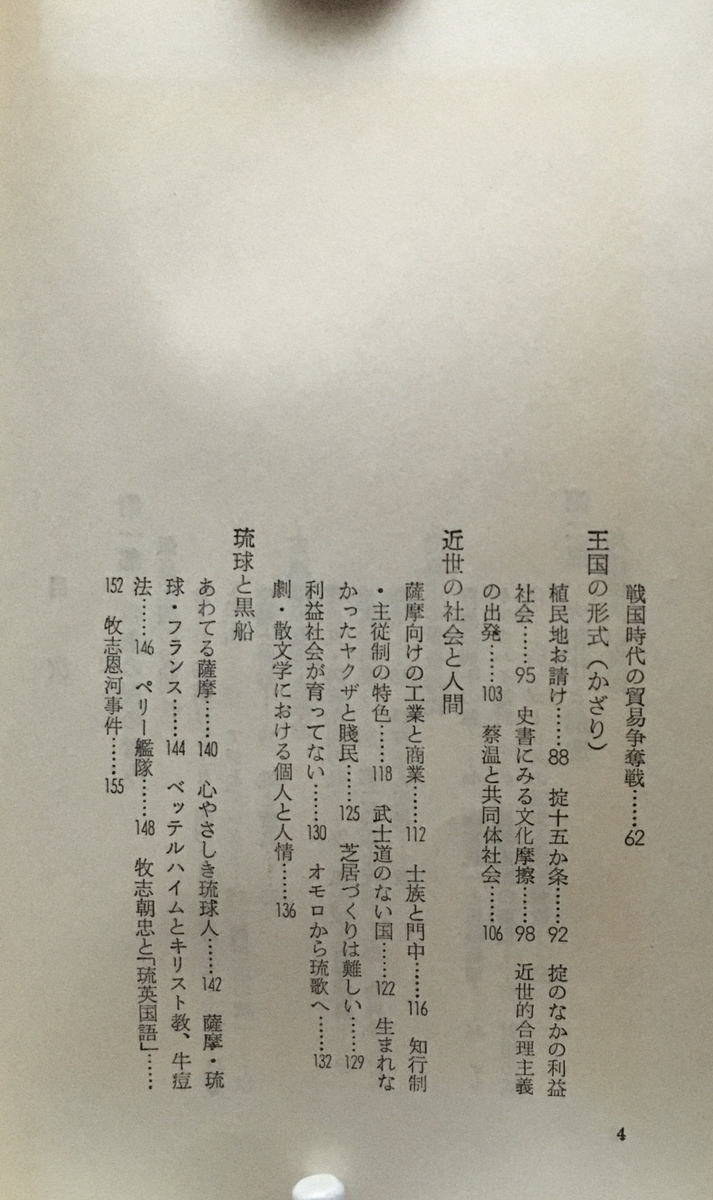 戦国時代の貿易争奪戦……62
王国の形式（かざり）
植民地お請け……88 掟十五か条……92 掟のなかの利益
社会……95 史書にみる文化摩擦……98 近世的合理主義
の出発……103 蔡温と共同体社会……106
近世の社会と人間
薩摩向けの工業と商業……112 士族と門中……116 知行制
・主従制の特色……118 武士道のない国……122 生まれな
かったヤクザと賤民……125 芝居づくりは難しい……129
利益社会が育ってない……130 オモロから琉歌へ……132
劇・散文学における個人と人情……136
琉球と黒船
あわてる薩摩……140 心やさしき琉球人……142 薩摩・琉
球・フランス……144 ベッテルハイムとキリスト教、牛痘
法……146 ペリー艦隊……148 牧志朝忠と「琉英国語」……
152 牧志恩河事件……155
4